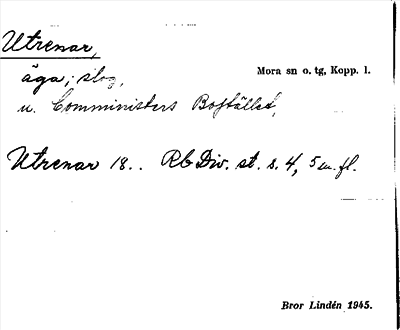 Utrenar,
äga; slog, Mora sn o. tg, Kopp. l.
u. Comministers Bostället,
Utrenar 18.. Rb Div. st. s. 4, 5 m. fl.
Bror Lindén 1945.